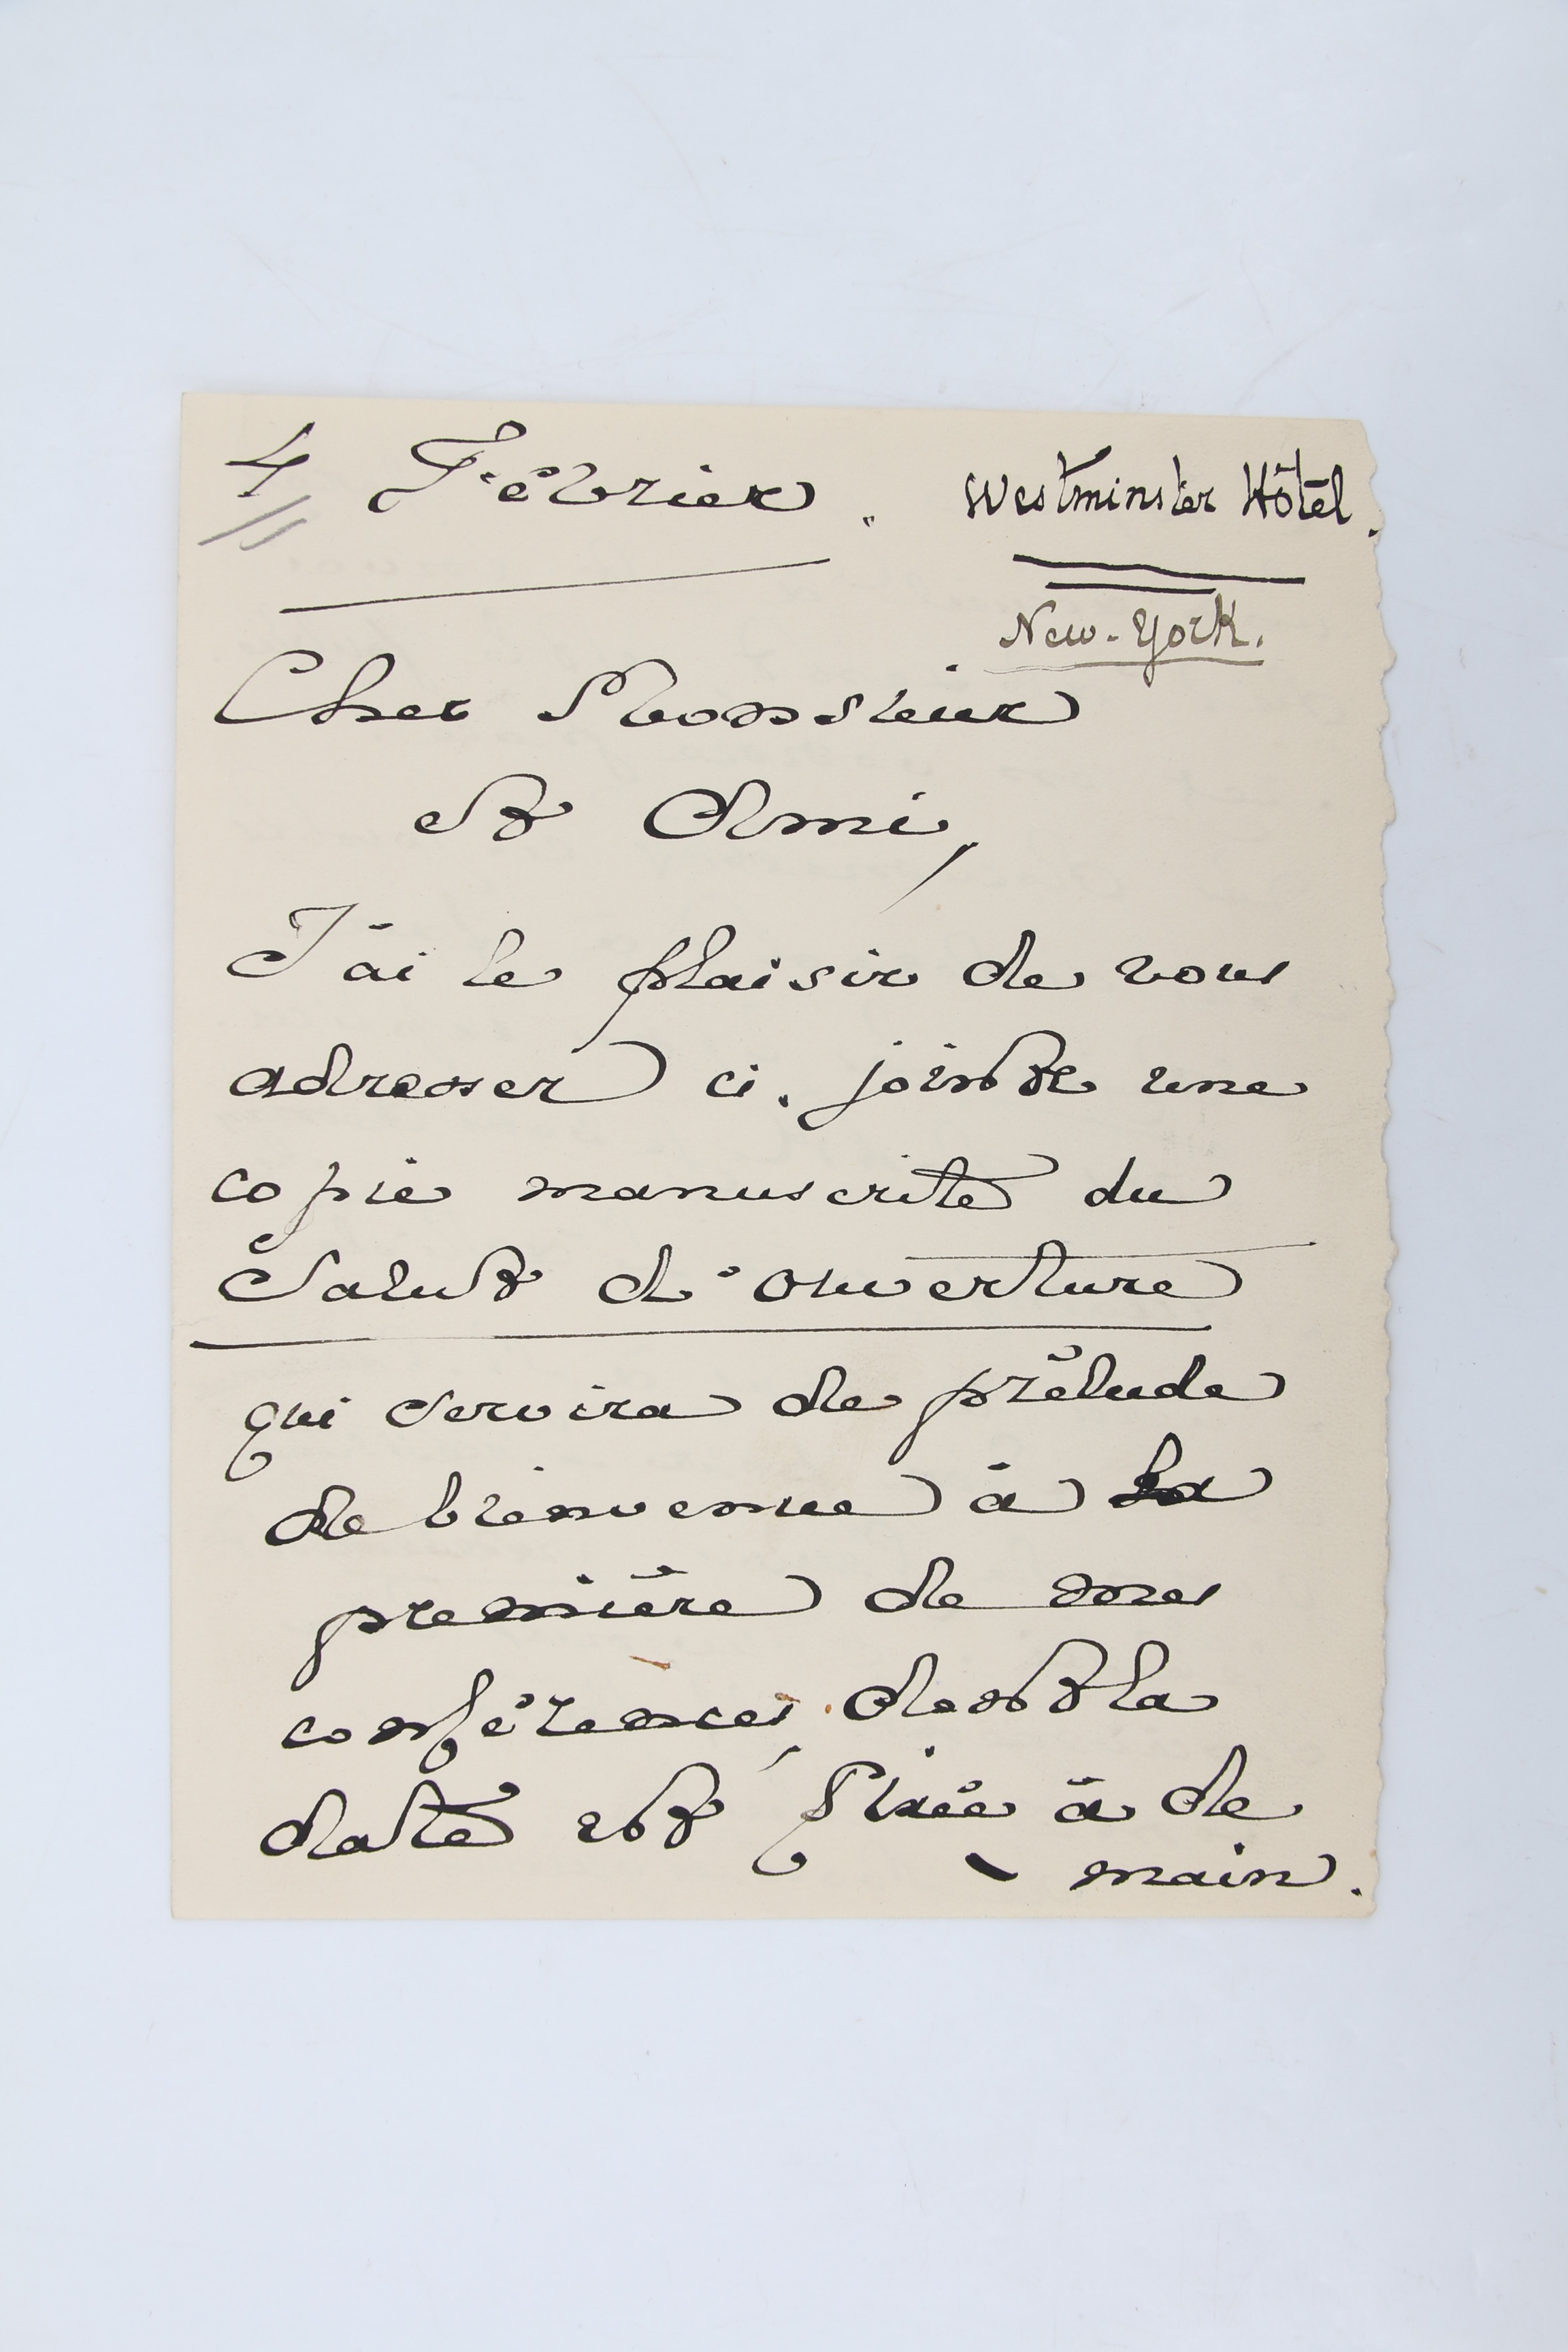 4 Février. Westminster Hôtel.
New-York.
Cher Monsieur
et Ami,
J'ai le plaisir de vous
adresser ci-jointe une
copie manuscrite du
Salut d'ouverture
qui servira de prélude
de bienvenue à la
première de mes
conférences, dont la
date est fixée à de
- main.